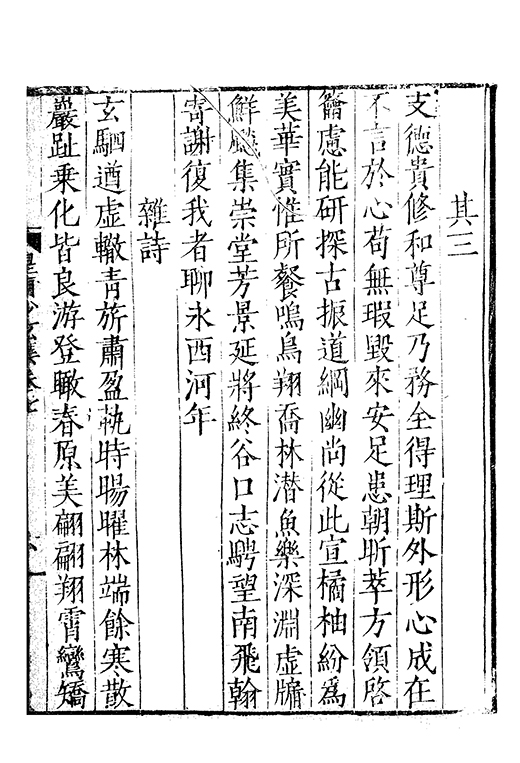 其三
支德貴修和尊足乃務全得理斯外形心成在
不言於心苟無瑕毀來安足患朝昕萃方領啓
籥慮能研探古振道綱幽尚從此宣橘柚紛爲
美華實惟所餐鳴鳥翔喬林潜魚樂深淵虚牖
鮮飈集崇堂芳景延將終谷口志騁望南飛翰
寄謝復我者聊永西河年
雜詩
玄駟遒虚轍青旂肅盈執時暘曜林端餘寒散
巖趾乗化皆良游登瞰春原美翩翩翔霄鸞矯
皇甫少玄集卷七